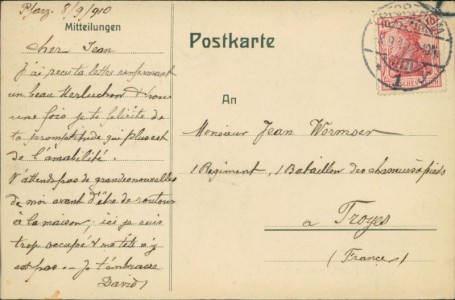 Pforz. 8/9/910
Mitteilungen
Cher Jean
J'ai reçu ta lettre renfermant
un beau & nous
une fois je te félicite de
ta promptitude qui plus est
de l'amabilité.
N'attends pas de grandes nouvelles
de moi avant d'être de retour
à la maison; ici je suis
trop occupé & ma tête n'y
est pas .. Je t'embrasse
David
Postkarte
An
Monsieur Jean Wormser
1 Regiment, 1 Bataillon des chasseurs à pieds
à Troyes
(France)